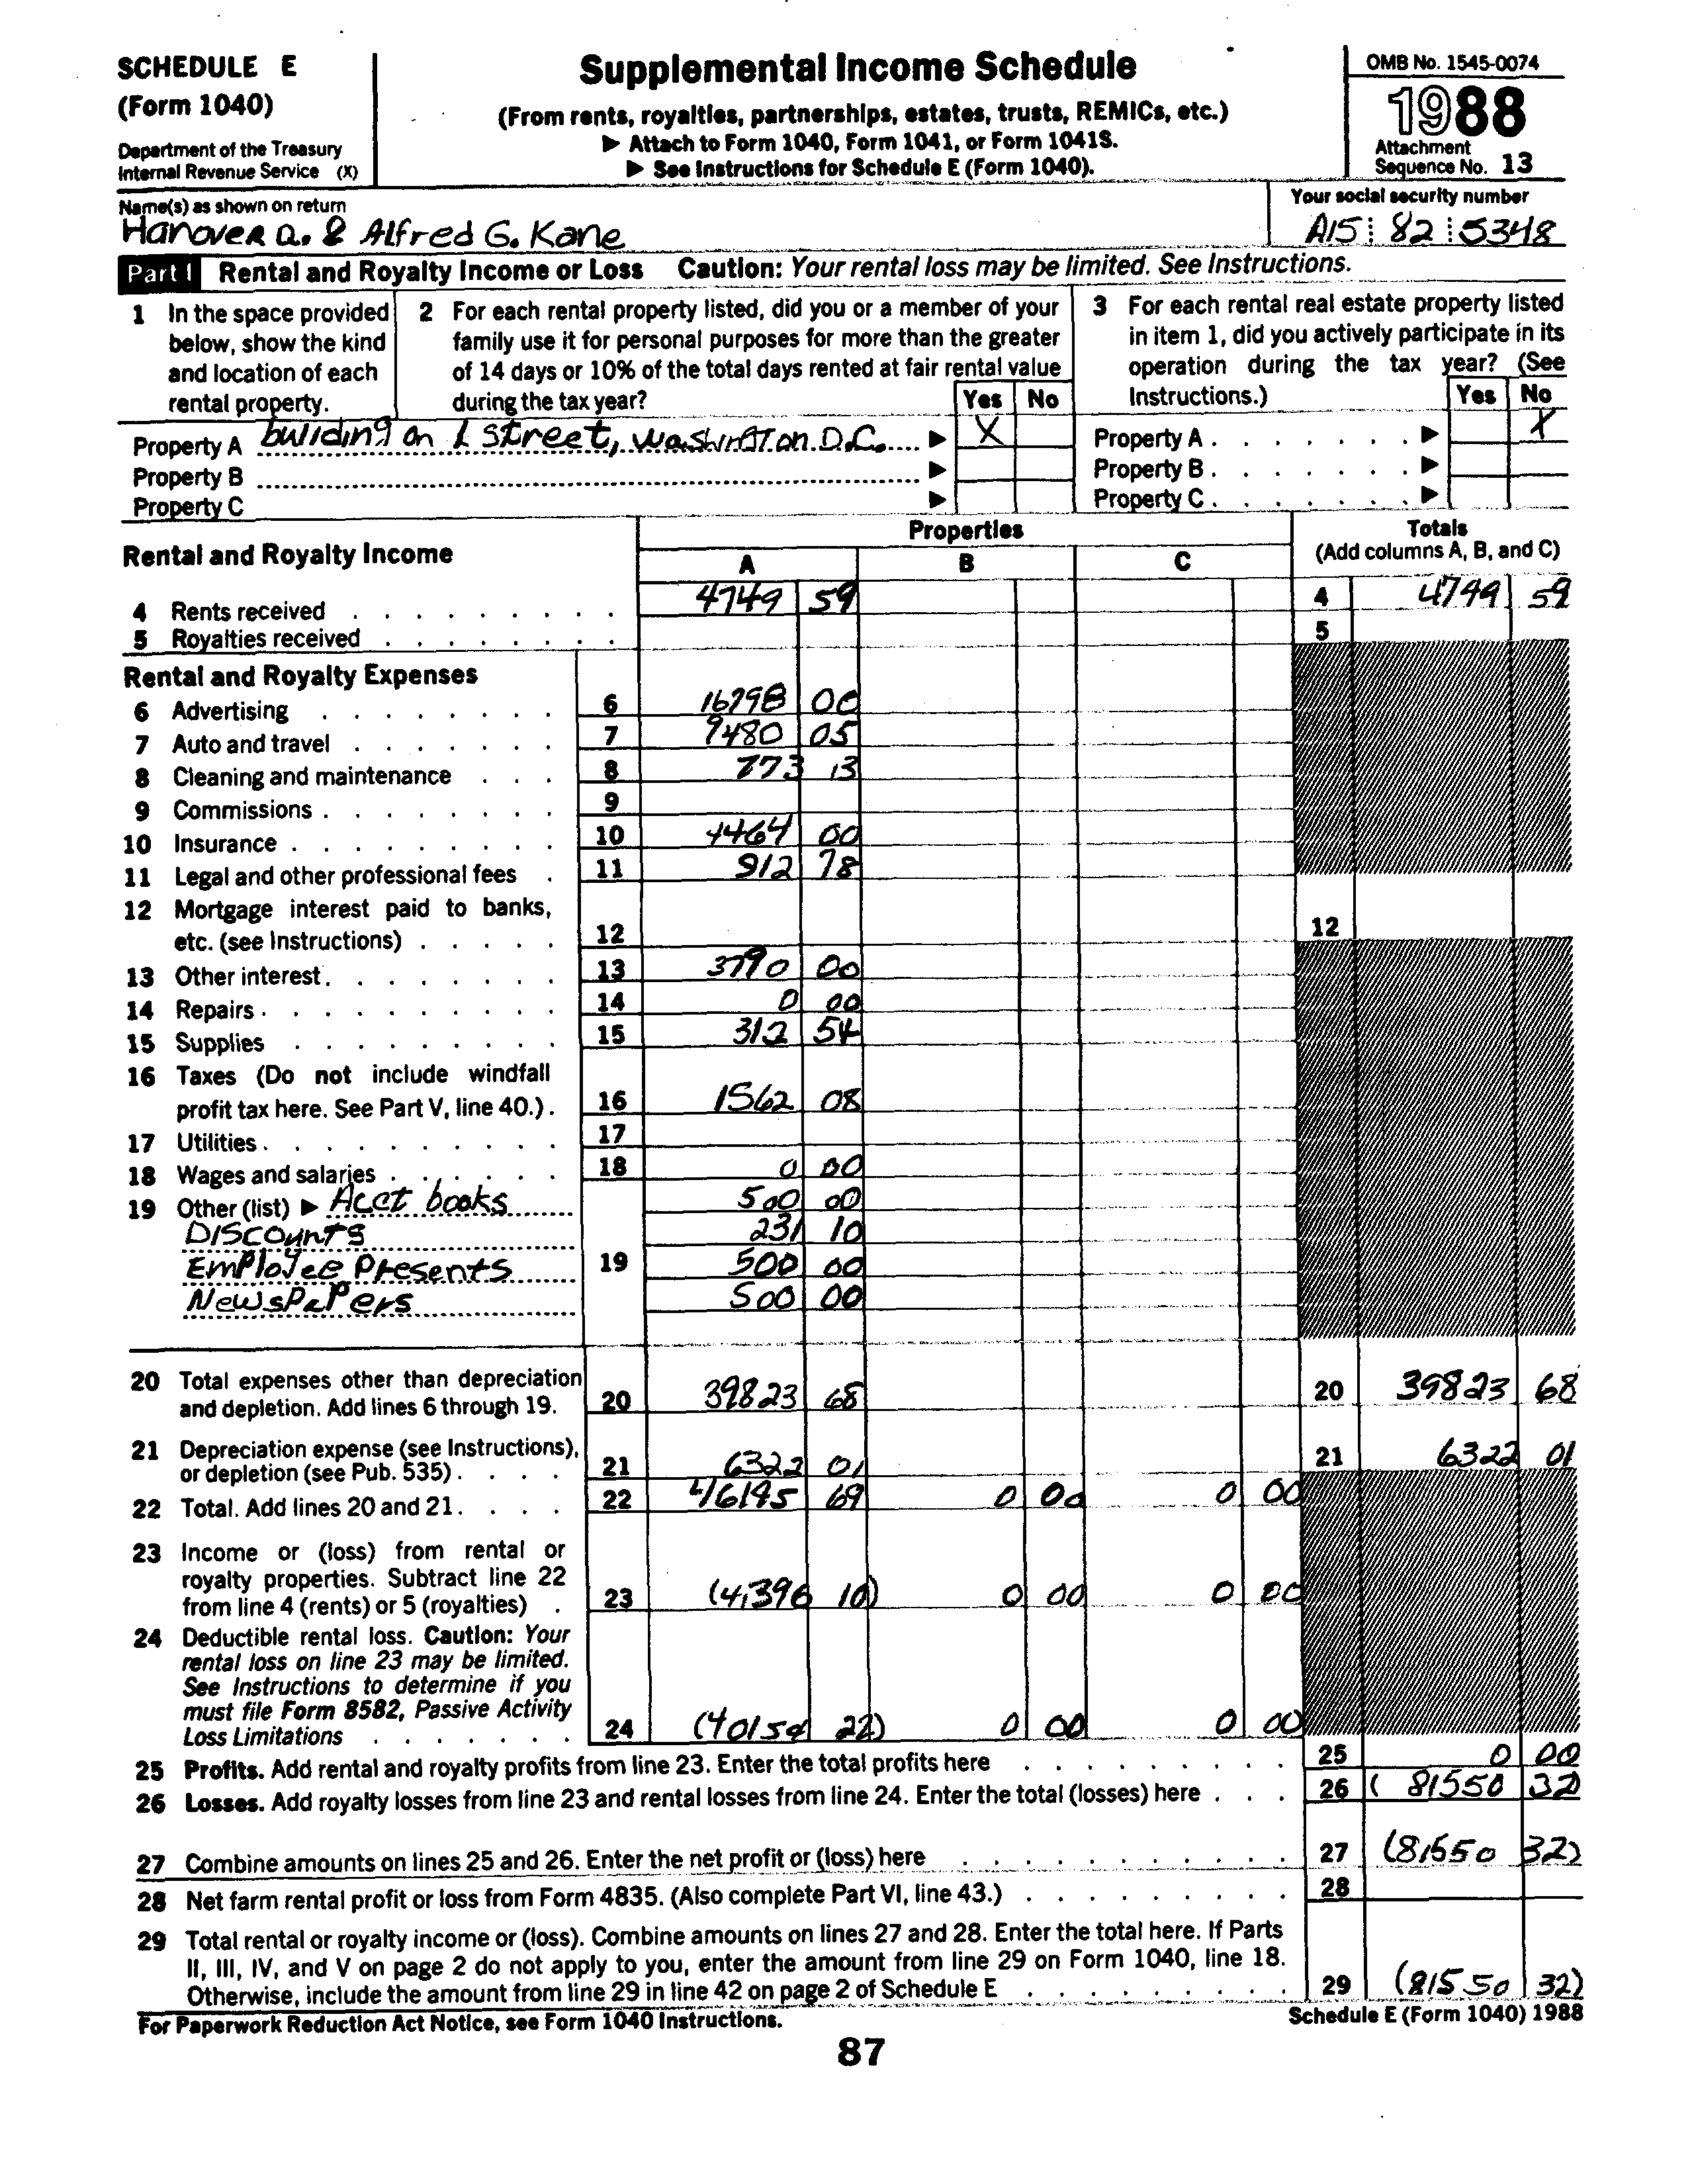 SCHEDULE E
(Form 1040)
Department of the Treasury
Internal Revenue Service (X)
Supplemental Income Schedule
(From rents, royalties, partnerships, estates, trusts, REMICs, etc.)
▶ Attach to Form 1040, Form 1041, or Form 1041S.
▶ See Instructions for Schedule E (Form 1040).
OMB No. 1545-0074
1988
Attachment
Sequence No. 13
Name(s) as shown on return
Hanover a. & Alfred G. Kane
Your social security number
A15 82 5348
Part I Rental and Royalty Income or Loss Caution: Your rental loss may be limited. See Instructions.
1 In the space provided
below, show the kind
and location of each
rental property.
2 For each rental property listed, did you or a member of your
family use it for personal purposes for more than the greater
of 14 days or 10% of the total days rented at fair rental value
during the tax year?
Yes No
3 For each rental real estate property listed
in item 1, did you actively participate in its
operation during the tax year? (See
Instructions.)
Yes No
Property A building on L Street, Washington D.C. ▶ X
Property B ▶
Property C ▶
Property A ▶ X
Property B ▶
Property C ▶
Rental and Royalty Income
Properties
A B C
Totals
(Add columns A, B, and C)
4 Rents received 4749 59 4 4749 59
5 Royalties received 5
Rental and Royalty Expenses
6 Advertising 6 16798 00
7 Auto and travel 7 9480 05
8 Cleaning and maintenance 8 773 13
9 Commissions 9
10 Insurance 10 4464 00
11 Legal and other professional fees 11 912 78
12 Mortgage interest paid to banks,
etc. (see Instructions) 12 12
13 Other interest 13 3790 00
14 Repairs 14 0 00
15 Supplies 15 312 54
16 Taxes (Do not include windfall
profit tax here. See Part V, line 40.) 16 1562 08
17 Utilities 17
18 Wages and salaries 18 0 00
19 Other (list) ▶ Acct books 500 00
Discounts 231 10
Employee Presents 19 500 00
Newspapers 500 00
20 Total expenses other than depreciation
and depletion. Add lines 6 through 19. 20 39823 68 20 39823 68
21 Depreciation expense (see Instructions),
or depletion (see Pub. 535) 21 6322 01 21 6322 01
22 Total. Add lines 20 and 21 22 46145 69 0 00 0 00
23 Income or (loss) from rental or
royalty properties. Subtract line 22
from line 4 (rents) or 5 (royalties) 23 (41,396 10) 0 00 0 00
24 Deductible rental loss. Caution: Your
rental loss on line 23 may be limited.
See Instructions to determine if you
must file Form 8582, Passive Activity
Loss Limitations 24 (40154 22) 0 00 0 00
25 Profits. Add rental and royalty profits from line 23. Enter the total profits here 25 0 00
26 Losses. Add royalty losses from line 23 and rental losses from line 24. Enter the total (losses) here 26 ( 81550 32)
27 Combine amounts on lines 25 and 26. Enter the net profit or (loss) here 27 (81550 32)
28 Net farm rental profit or loss from Form 4835. (Also complete Part VI, line 43.) 28
29 Total rental or royalty income or (loss). Combine amounts on lines 27 and 28. Enter the total here. If Parts
II, III, IV, and V on page 2 do not apply to you, enter the amount from line 29 on Form 1040, line 18.
Otherwise, include the amount from line 29 in line 42 on page 2 of Schedule E 29 (81550 32)
For Paperwork Reduction Act Notice, see Form 1040 Instructions.
Schedule E (Form 1040) 1988
87